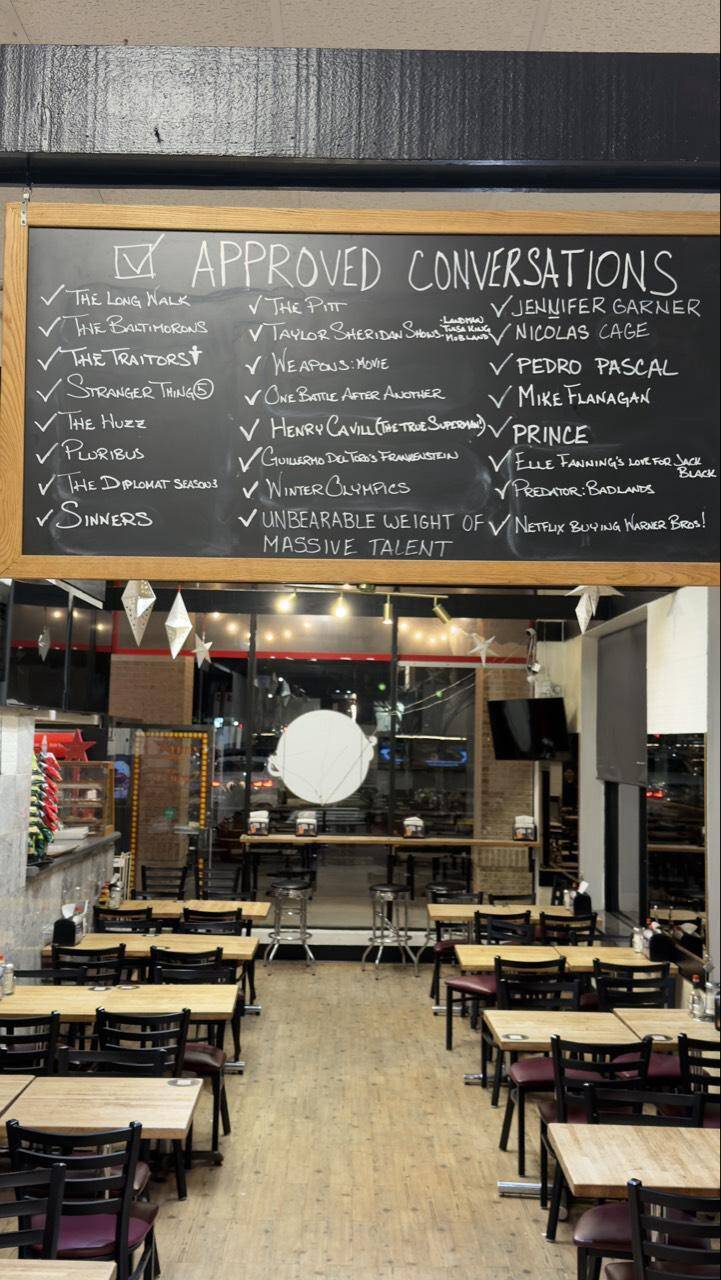 ☑ APPROVED CONVERSATIONS
✓ THE LONG WALK
✓ THE BALTIMORONS
✓ THE TRAITORS
✓ STRANGER THING⑤
✓ THE HUZZ
✓ PLURIBUS
✓ THE DIPLOMAT SEASON 3
✓ SINNERS
✓ THE PITT
✓ TAYLOR SHERIDAN SHOWS
-LANDMAN
TULSA KING
MOBLAND
✓ WEAPONS: MOVIE
✓ ONE BATTLE AFTER ANOTHER
✓ HENRY CAVILL (THE TRUE SUPERMAN!)
✓ GUILLERMO DEL TORO'S FRANKENSTEIN
✓ WINTER OLYMPICS
✓ UNBEARABLE WEIGHT OF
MASSIVE TALENT
✓ JENNIFER GARNER
✓ NICOLAS CAGE
✓ PEDRO PASCAL
✓ MIKE FLANAGAN
✓ PRINCE
✓ ELLE FANNING'S LOVE FOR JACK
BLACK
✓ PREDATOR: BADLANDS
✓ NETFLIX BUYING WARNER BROS!